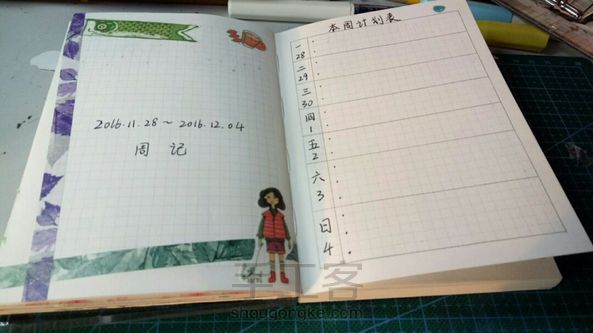 2016.11.28 ~ 2016.12.04
周 记
本周计划表
一
28
二
29
三
30
四
1
五
2
六
3
日
4
手工客
shougongke.com